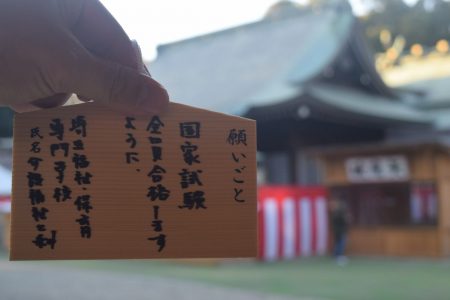 願いごと
国家試験
全員合格しる す
ように、
埼玉福祉・保育
専門学校
氏名 介護福祉士科